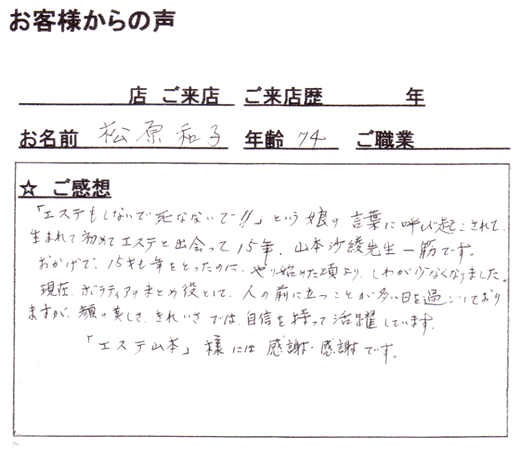 お客様からの声
店 ご来店 ご来店歴 年
お名前 松原和子 年齢 74 ご職業
☆ ご感想
「エステもしないで死なないで!!」という娘の言葉に呼び起こされて、
生まれて初めてエステと出会って15年、山本沙綾先生一筋です。
おかげで、15才も年をとったのに、やり始めた頃より、しわが少なくなりました。
現在、ボランティアのまとめ役として、人の前に立つことが多い日を過ごしており
ますが、顔の美しさ、きれいさでは、自信を持って活躍しています。
「エステ山本」様には感謝・感謝です。